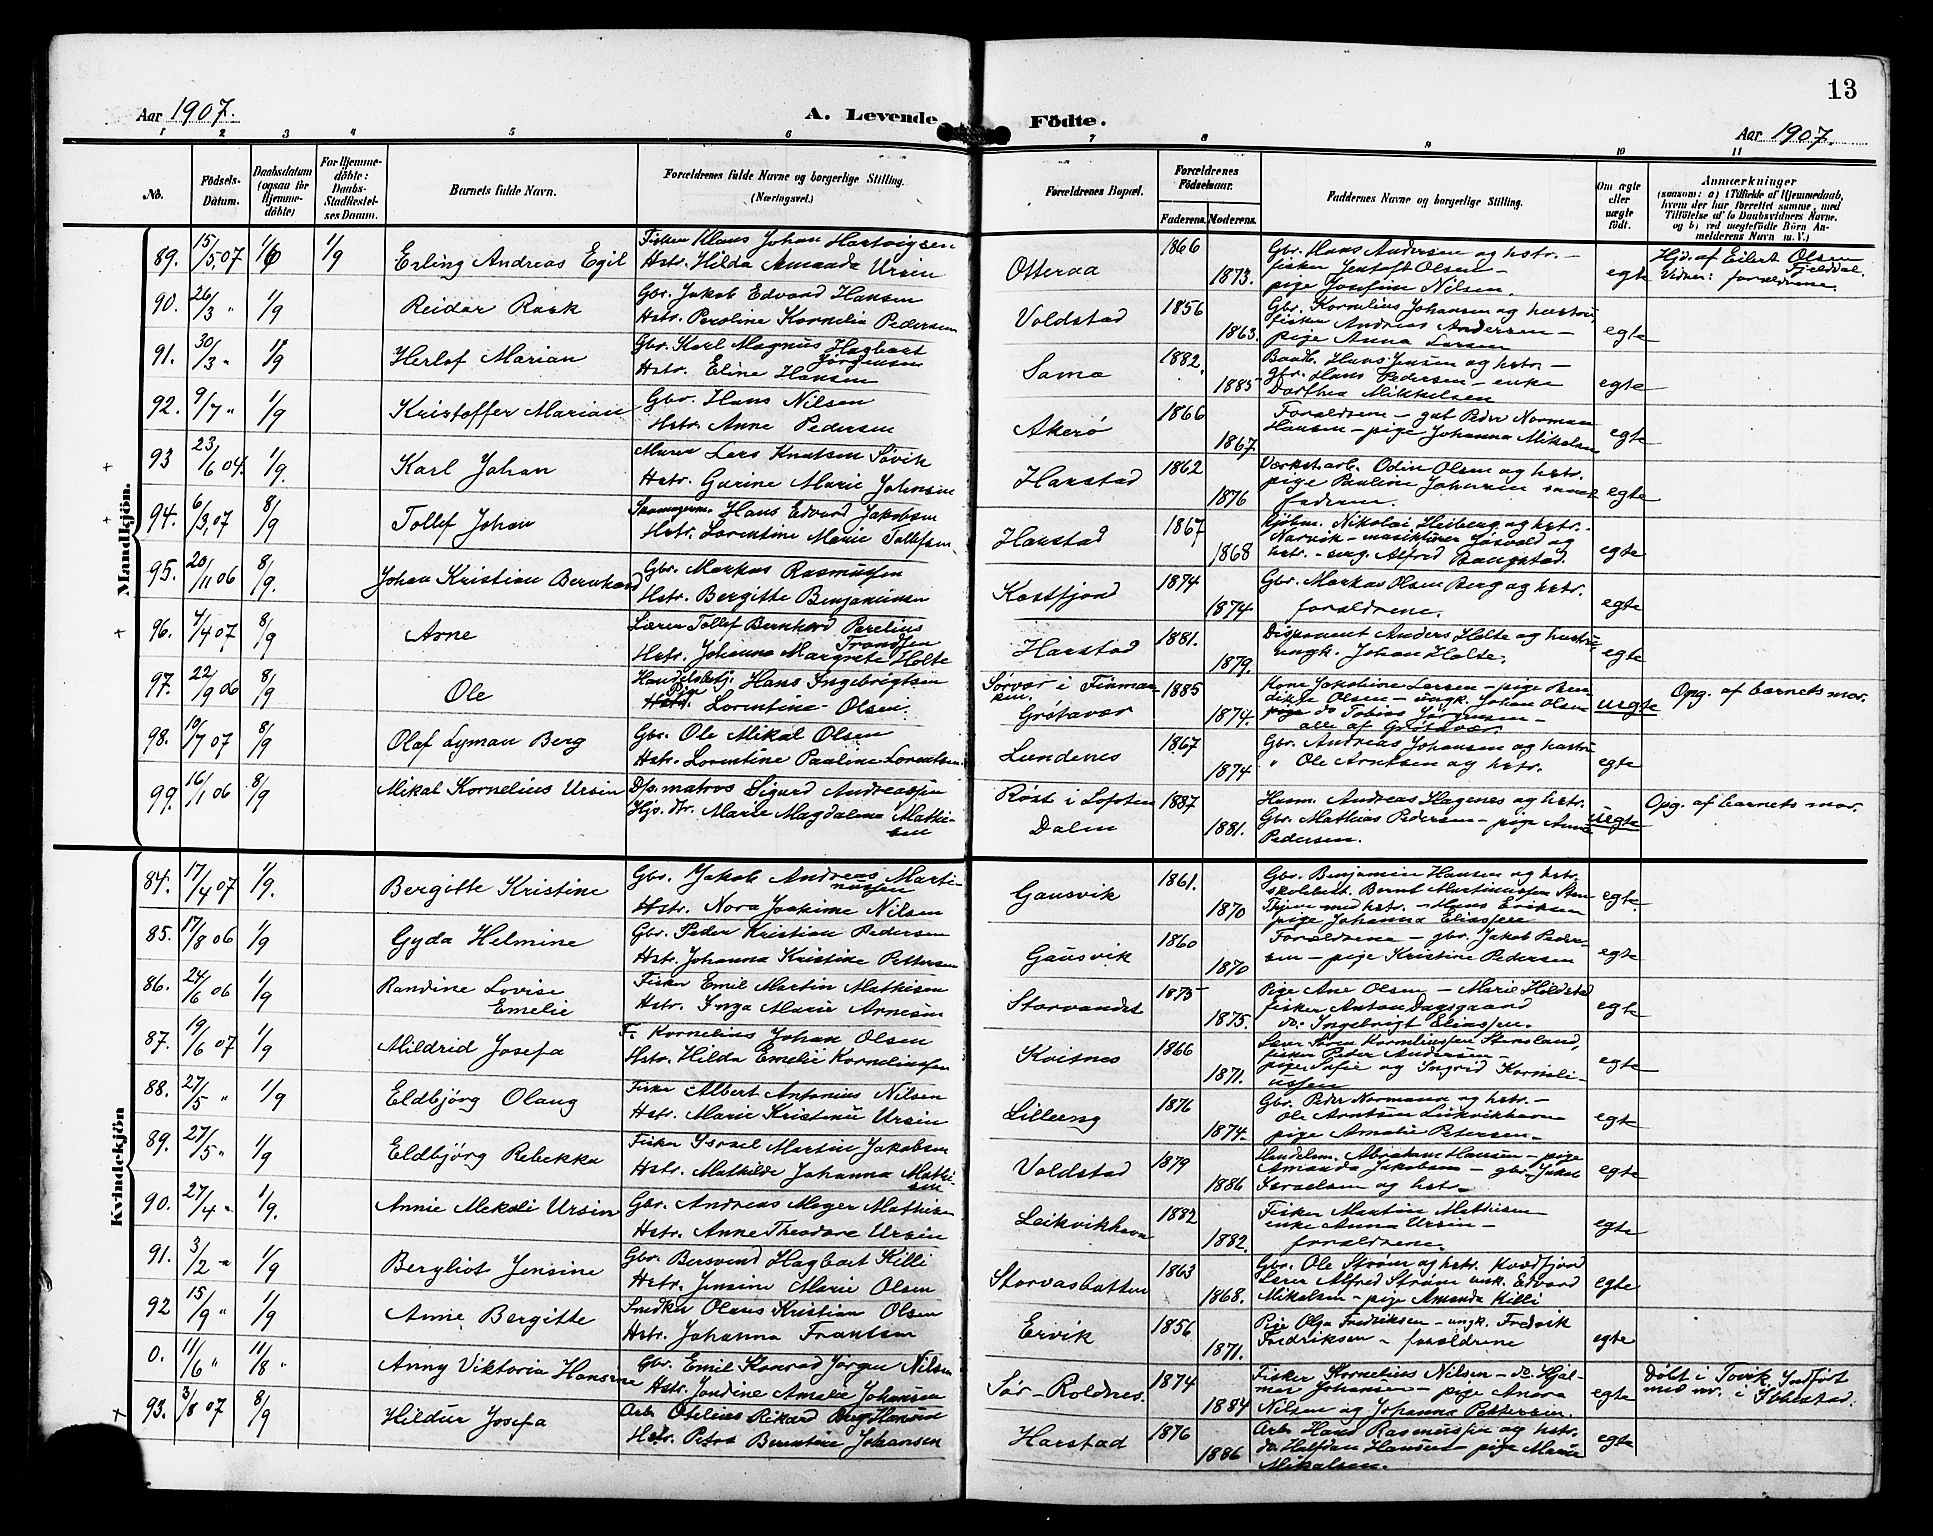 13
Aar 1907.
A. Levende
Födte.
Aar 1907.
1 2 3 4 5 6 7 8 9 10 11
No.
Födsels-
Datum.
Daabsdatum
(ogsaa for
Hjemme-
döbte)
For Hjemme-
döbte:
Daabs-
Stadfæstel-
ses Datum.
Barnets fulde Navn.
Forældrenes fulde Navne og borgerlige Stilling.
(Næringsvei.)
Forældrenes Bopæl.
Forældrenes
Födselsaar.
Faderens. Moderens.
Faddernes Navne og borgerlige Stilling.
Om ægte
eller
uægte
født.
Anmærkninger
(saasom: a) i Tilfælde af Hjemmedaab,
hvem der har forrettet samme, med
Tilföielse af to Daabsvidners Navne.
og b) ved uægtefödte Börn An-
melderens Navn m. V.)
Mandkjön.
89. 15/5,07 1/6 1/9 Erling Andreas Egil
Fisker Klaus Johan Hartvigsen
Hstr. Hilda Amanda Ursin
Otteraa 1866 1873.
Gbr. Hans Andersen og hstr. –
fisker Jentoft Olsen –
pige Josefine Nilsen.
egte
Hjd. af Eilert Olsen
Fjelddal.
Vidner: forældrene.
90. 26/3 " 1/9 Reidar Rask
Gbr. Jakob Edvard Hansen
Hstr. Peroline Kornelia Pedersen
Voldstad 1856 1863.
Gbr. Kornelius Johansen og hustru,
fisker Andreas Andersen –
pige Anna Larsen
egte
91. 30/3 " 1/9 Herlof Marian
Gbr. Karl Magnus Hagbart
Jörgensen
Hstr. Eline Hansen
Sama 1882. 1885
Baadb. Hans Jensen og hstr. –
gbr. Hans Pedersen – enke
Dorthea Mikkelsen
egte
92. 9/7 " 1/9 Kristoffer Marian
Gbr. Hans Nilsen
Hstr. Anne Pedersen
Akerö 1866 1867.
Forældrene – gut Peder Norman
Hansen – pige Johanna Mikalsen
egte
93 23/6 04. 1/9 Karl Johan
Murer Lars Knutsen Søvik
Hstr. Gurine Marie Johnsen
Harstad 1862 1876
Værkst.arb. Odin Olsen og hstr.
pige Pauline Johansen samt
faderen.
egte
94. 6/3,07 8/9 Tollef Johan
Skomagerm. Hans Edvard Jakobsen
Hstr. Lorentine Marie Tollefsen
Harstad 1867 1868
Kjöbm. Nikolai Heiberg og hstr.
Narvik – Alfred
egte
95. 20/11 06 8/9. Johan Kristian Bernhard
Gbr. Markus Rasmussen
Hstr. Bergitte Benjaminsen
Kastfjord 1874 1874.
Gbr. Markus Olsen Berg og hstr.
forældrene.
egte
96. 7/4 07 8/9 Arne
Lærer Tollef Bernhard Parelius
Trondsen
Hstr. Johanna Margrete Holte
Harstad 1881. 1879.
Disponent Anders Holte og hustru,
ungk. Johan Holte.
egte
97. 22/9 06 8/9 Ole
Handelsbetj. Hans Ingebrigtsen
Pige
Hstr. Lorentine Olsen.
Sørvær i Finmar-
ken.
Grötavær 1885 1874.
Kone Jakobine Larsen – pige Ben-
dikte Olsen – ungk. Johan Olsen
pige do Tobias Jörgensen –
alle af Grötavær.
uegte
Opg. af barnets mor.
98. 10/7 07 8/9 Olaf Lyman Berg
Gbr. Ole Mikal Olsen
Hstr. Lorentine Pauline Lorentsen
Lundenes 1867 1874
Gbr. Andreas Johansen og hustru
" Ole Arntsen og hstr.
egte
99. 16/1 06 8/9 Mikal Kornelius Ursin
Dp. matros Sigurd Andreassen
Hjs. dtr. Marie Magdalena Mathi-
sen
Röst i Lofoten
Dalen 1887 1881.
Husm. Andreas Hagenes og hstr.
Gbr. Mathias Pedersen – pige Anna
Pedersen.
uegte
Opg. af barnets mor.
Kvindekjön
84. 17/4 07 1/9. Bergitte Kristine
Gbr. Jakob Andreas Marti-
nussen
Hstr. Nora Joakime Nilsen
Gausvik 1861. 1870
Gbr. Benjamin Hansen og hstr.
skolebest. Bernt Martinussen Sten-
Hans Eriksen
pige Johanna Eliassen
egte.
85. 17/8 06 1/9 Gyda Helmine
Gbr. Peder Kristian Pedersen
Hstr. Johanna Kristine Pettersen
Gausvik 1860 1870
Forældrene – gbr. Jakob Peder-
sen – pige Kristine Pedersen
egte
86. 24/6 06 1/9 Randine Lovise
Emelie
Fisker Emil Martin Mathisen
Hstr. Inga Marie Arnesen
Storvandet 1875 1875.
Pige Ane Olsen – Marie Holdstad
fisker Anton Dagsgaard
do. Ingebrigt Eliassen.
egte
87. 19/6 07 1/9 Mildrid Josefa
F. Kornelius Johan Olsen
Hstr. Hilda Emelie Korneliussen
Kvitnes 1866 1871.
Lærer Sören Korneliussen Stensland,
fisker Peder Andersen –
pige Sofie og Ingrid Korneli-
ussen
egte
88. 27/5 " 1/9 Eldbjörg Olaug
Fisker Albert Antonius Nilsen
Hstr. Marie Kristine Ursin
Lilleeng 1876 1874.
Gbr. Peder Normann og hstr. –
Ole Arntsen Leikvikhavn
pige Amalie Petersen –
egte
89. 27/5 " 1/9 Eldbjörg Rebekka
Fisker Israel Martin Jakobsen
Hstr. Mathilde Johanna Mathi-
sen
Voldstad 1879 1886
Handelsm. Abraham Hansen – pige
Amanda Jakobsen – gbr. Jakob
Israelsen og hstr.
egte
90. 27/4 " 1/9. Annie Mekali Ursin
Gbr. Andreas Meyer Mathisen
Hstr. Anne Theodora Ursin
Leikvikhavn 1882 1882.
Fisker Martin Mathisen
enke Anna Ursin –
forældrene.
egte
91. 3/2 " 1/9 Bergliot Jensine
Gbr. Bersvend Hagbart Killi
Hstr. Jensine Marie Olsen
Storvasbotten 1863 1868.
Gbr. Ole Ström og hstr. Kvæfjord
Lærer Alfred Ström unk. Edvard
Mikalsen – pige Amanda Killi
egte
92 15/9 " 1/9 Anne Bergitte
Snedker Olaus Kristian Olsen
Hstr. Johanna Frantsen
Ervik 1856 1871.
Pige Olga Fredriksen – ungk. Fredrik
Fredriksen – forældrene
egte
0. 11/6 " 11/8 " Anny Viktoria Hansine
Gbr. Emil Konrad Jörgen Nilsen
Hstr. Jondine Amalie Johansen
Sör-Rollnes. 1874 1884
Fisker Kornelius Nilsen – do. Hjal-
mar Johansen – pige Anora
Nilsen og Johanna Pettersen.
egte
Döbt i Tovik. Indfört
med nr. i Ibestad.
93. 3/8 07 8/9 Hildur Josefa
Arb. Otelius Rikard Berg Hansen
Hstr. Petra Berntine Johansen
Harstad 1876 1886
Arb. Hans Rasmussen og hstr.
do. Halfdan Hansen – pige Marie
Mikalsen.
egte